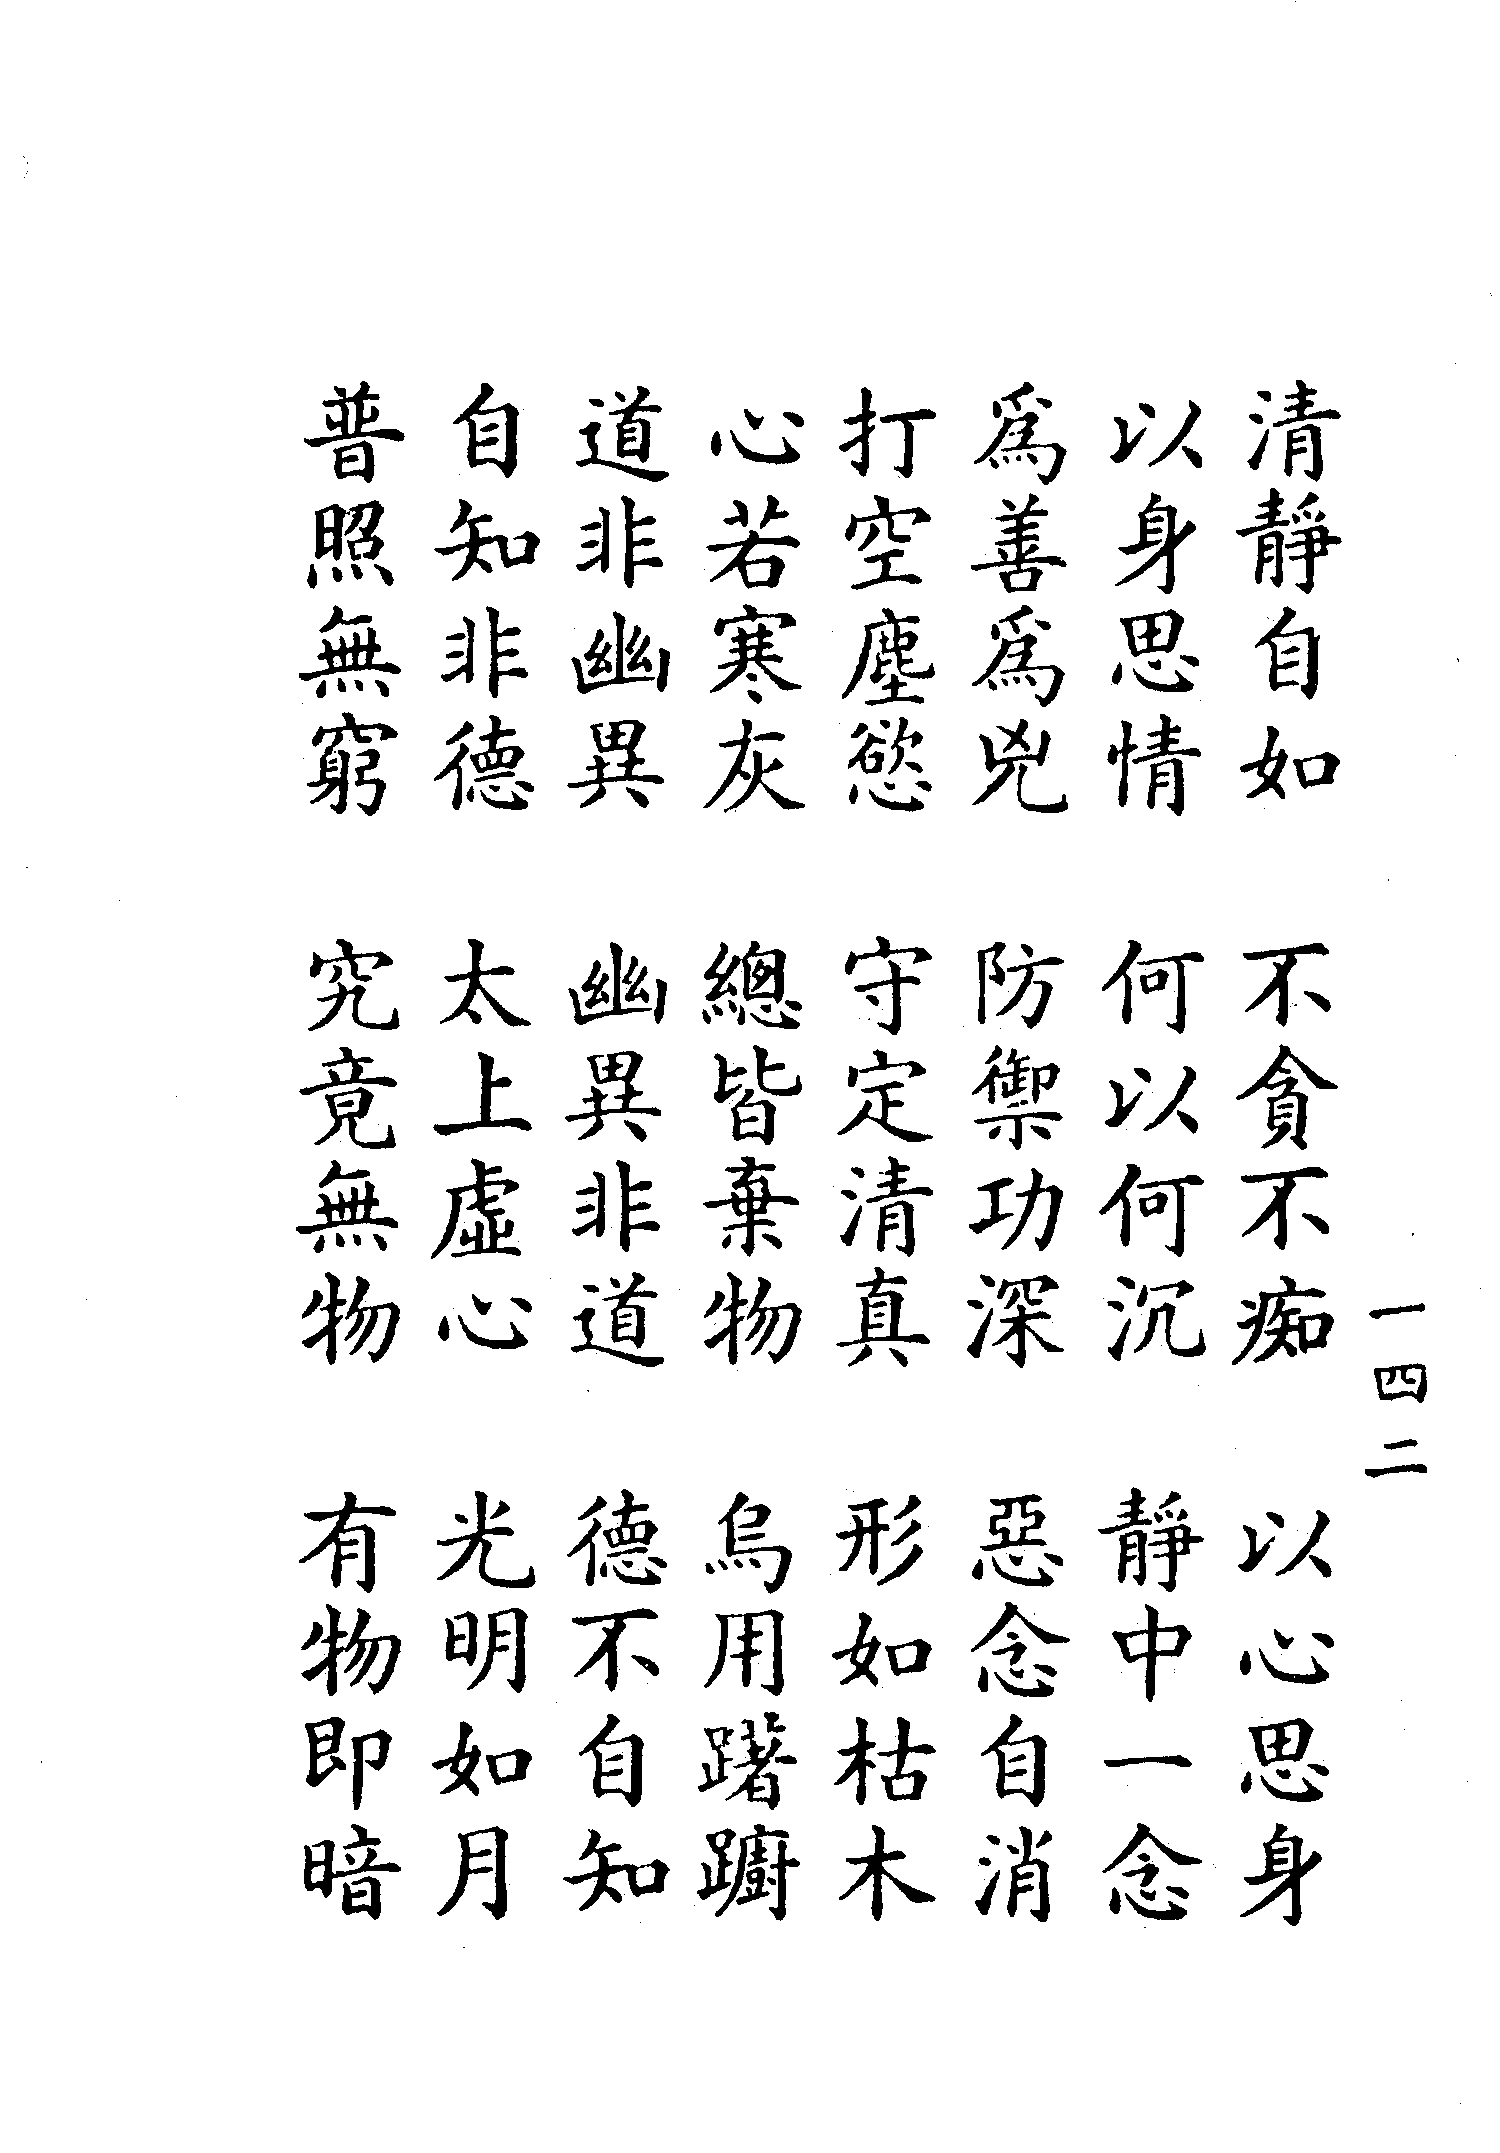 一四二
清靜自如　不貪不痴　以心思身
以身思情　何以何沉　靜中一念
爲善爲兇　防禦功深　惡念自消
打空塵慾　守定清真　形如枯木
心若寒灰　總皆棄物　烏用躇躕
道非幽異　幽異非道　德不自知
自知非德　太上虛心　光明如月
普照無窮　究竟無物　有物即暗